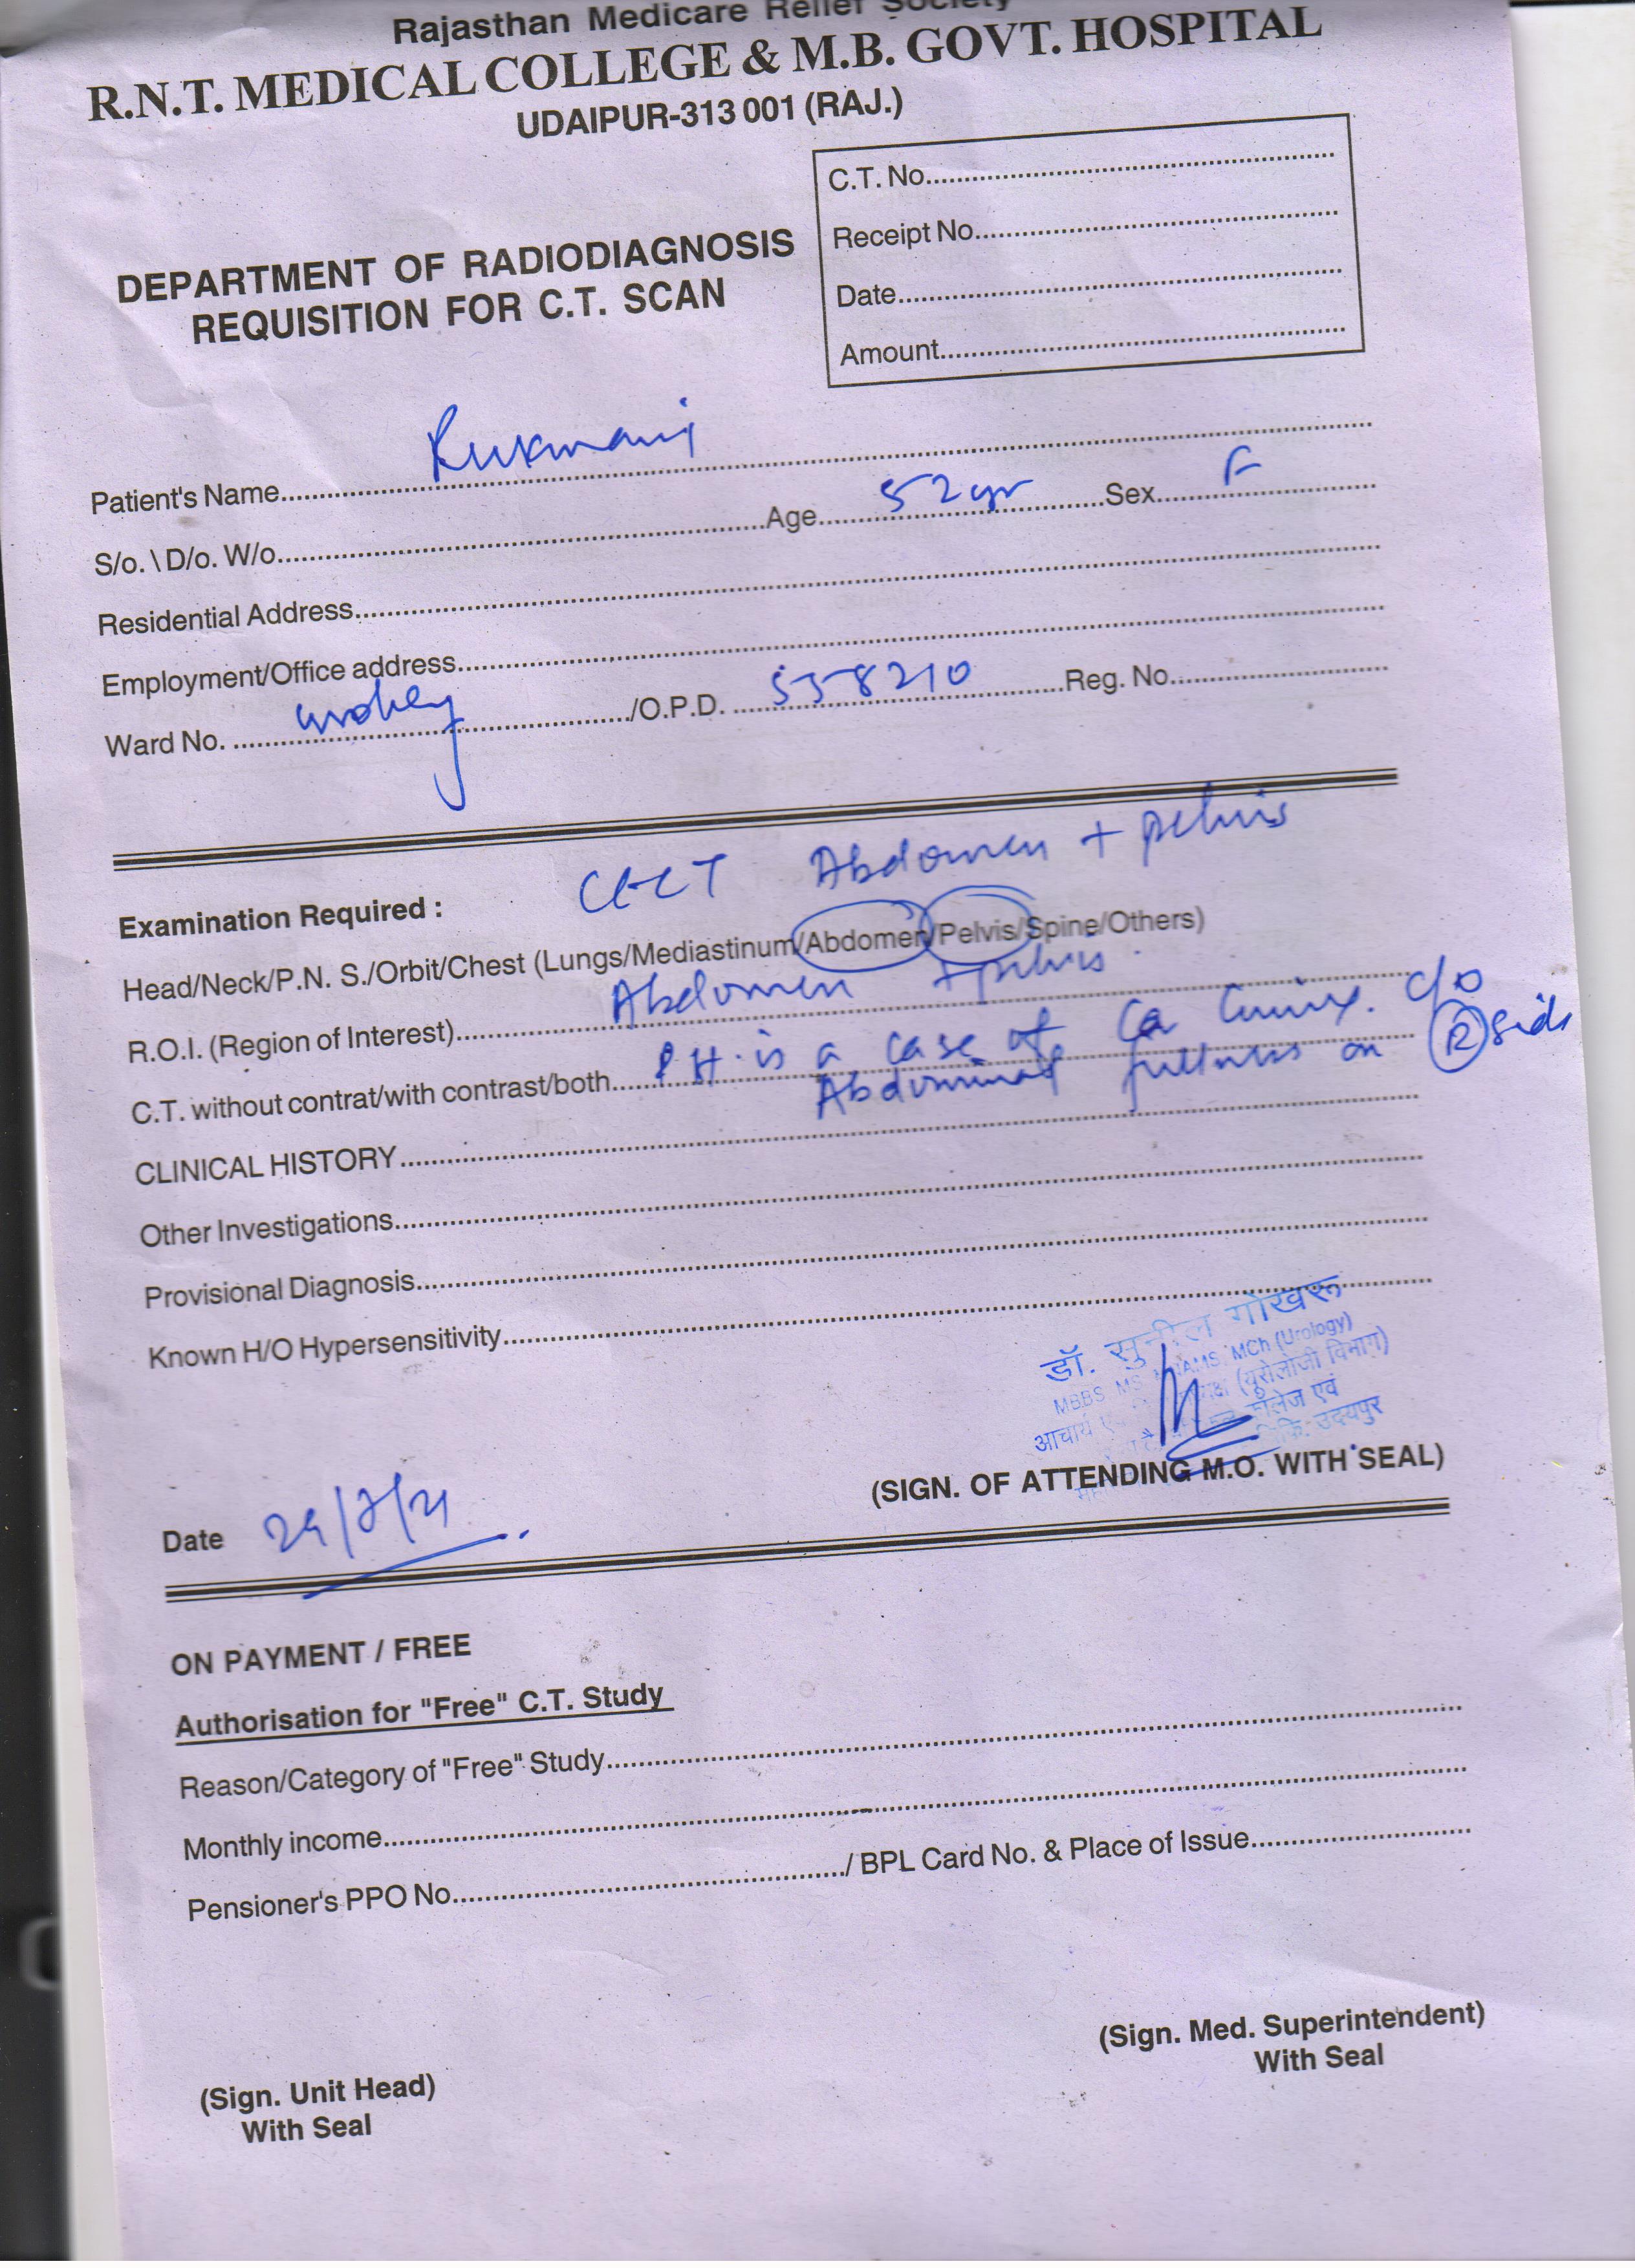 Rajasthan Medicare Relief Society
R.N.T. MEDICAL COLLEGE & M.B. GOVT. HOSPITAL
UDAIPUR-313 001 (RAJ.)
C.T. No.
Receipt No.
Date
Amount
DEPARTMENT OF RADIODIAGNOSIS
REQUISITION FOR C.T. SCAN
Patient's Name Rukmani
S/o. \ D/o. W/o. Age 52 yr Sex F
Residential Address
Employment/Office address
Ward No. urology /O.P.D. 558210 Reg. No.
Examination Required : CECT Abdomen + pelvis
Head/Neck/P.N. S./Orbit/Chest (Lungs/Mediastinum/Abdomen/Pelvis/Spine/Others)
R.O.I. (Region of Interest) Abdomen + pelvis
C.T. without contrat/with contrast/both Pt. is a case of Ca Cervix. c/o
Abdominal fullness on R side
CLINICAL HISTORY
Other Investigations
Provisional Diagnosis
Known H/O Hypersensitivity
डॉ. सुनील गोखरू
MBBS MS MNAMS MCh (Urology)
आचार्य (यूरोलोजी विभाग)
कॉलेज एवं
उदयपुर
(SIGN. OF ATTENDING M.O. WITH SEAL)
Date 29/7/21
ON PAYMENT / FREE
Authorisation for "Free" C.T. Study
Reason/Category of "Free" Study
Monthly income
Pensioner's PPO No. / BPL Card No. & Place of Issue
(Sign. Med. Superintendent)
With Seal
(Sign. Unit Head)
With Seal